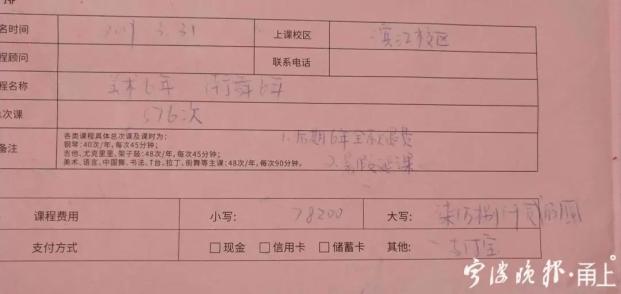 名时间 2019 3.31 上课校区 滨江校区
程顾问 联系电话
程名称 美术6年 街舞6年
总次课 576次
备注 各类课程具体总次课及课时为:
钢琴: 40次/年, 每次45分钟;
吉他、尤克里里、架子鼓: 48次/年, 每次45分钟;
美术、语言、中国舞、书法、T台、拉丁、街舞等主课: 48次/年, 每次90分钟。
1. 后期6年全款退费
课
课程费用 小写: 78200 大写: 柒万捌仟贰佰圆
支付方式 □现金 □信用卡 □储蓄卡 其他: 支付宝
宁波晚报·甬上